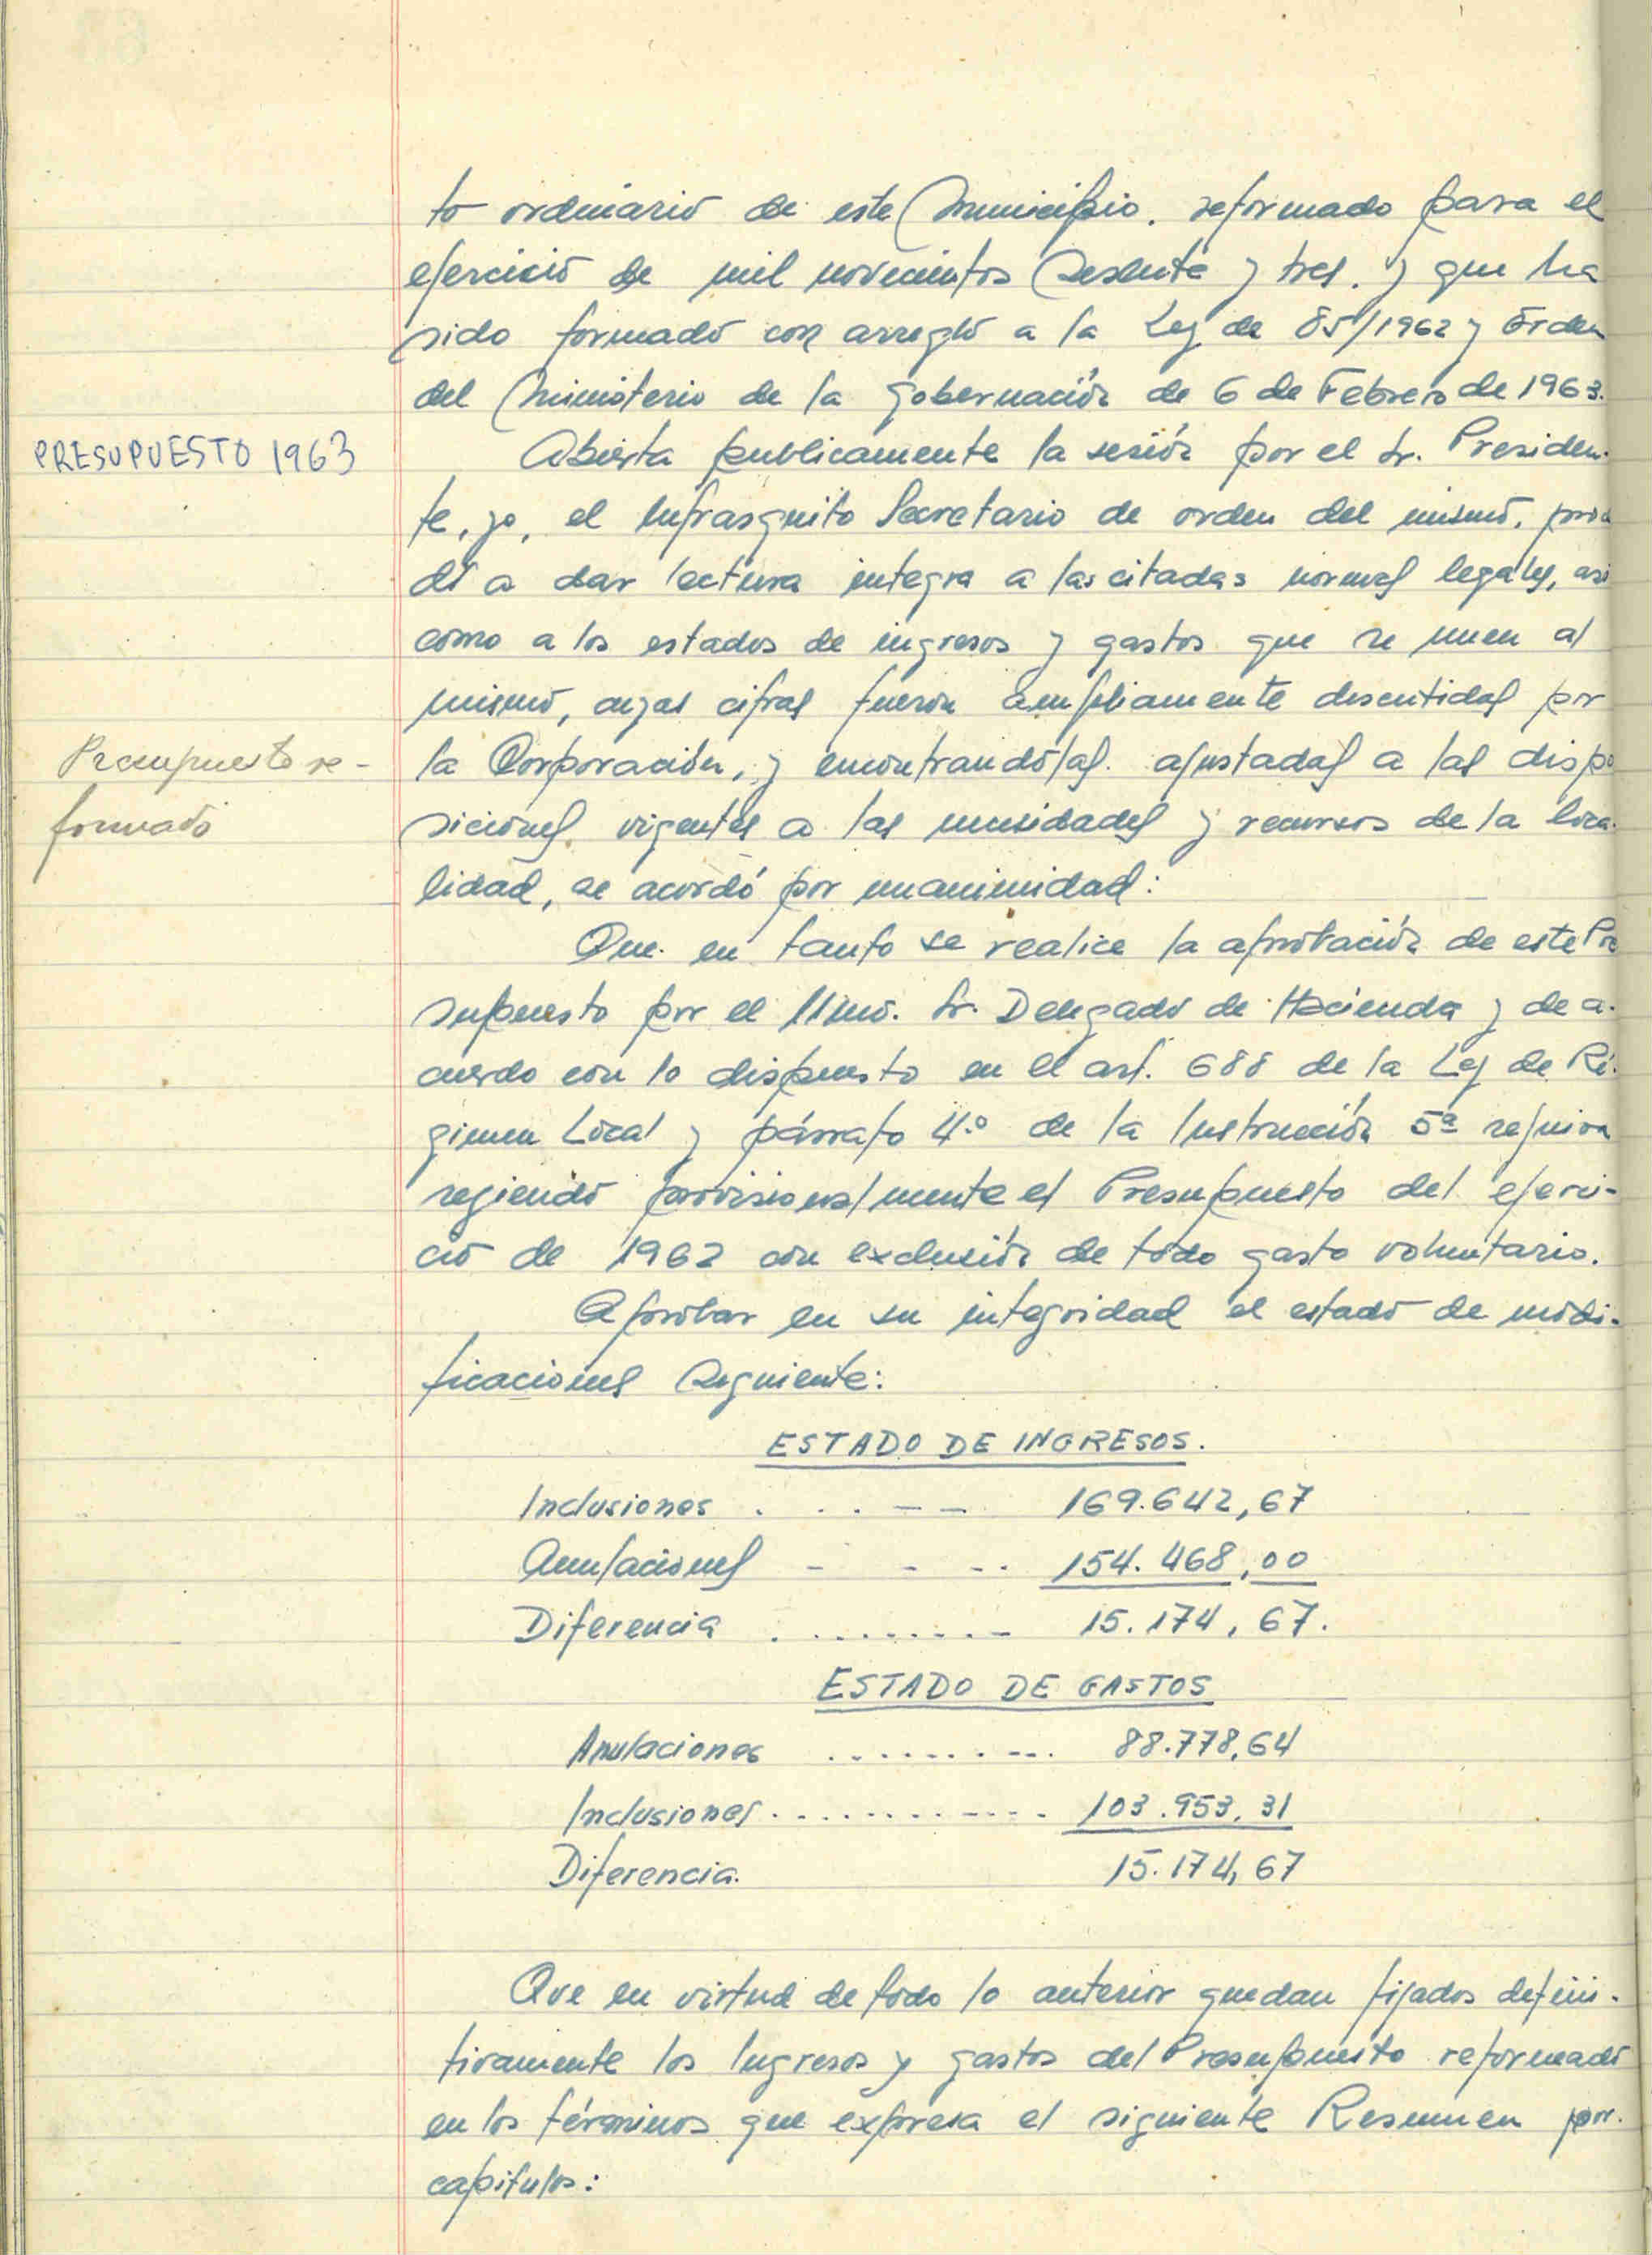 to ordinario de este Municipio, reformado para el
ejercicio de mil novecientos sesenta y tres, y que ha
sido formado con arreglo a la Ley de 85/1962 y Orden
del Ministerio de la Gobernación de 6 de Febrero de 1963.
PRESUPUESTO 1963
Abierta publicamente la sesión por el Sr. Presiden-
te, yo, el Infrasquito Secretario de orden del mismo, proce
dí a dar lectura integra a las citadas normas legales, asi
como a los estados de ingresos y gastos que se unen al
mismo, cuyas cifras fueron ampliamente discutidas por
Presupuesto re-
formado
la Corporación, y encontrandolas ajustadas a las dispo
siciones vigentes a las necesidades y recursos de la loca-
lidad, se acordó por unanimidad:
Que en tanto se realice la aprobación de este Pre
supuesto por el Ilmo. Sr. Delegado de Hacienda y de a-
cuerdo con lo dispuesto en el art. 688 de la Ley de Ré-
gimen Local y párrafo 4.º de la Instrucción 5ª
regiendo provisionalmente el Presupuesto del ejerci-
cio de 1962 con exclusión de todo gasto voluntario.
Aprobar en su integridad el estado de modi-
ficaciones siguiente:
ESTADO DE INGRESOS.
Inclusiones . . . - - 169.642,67
Anulaciones - - - . . 154.468,00
Diferencia . . . . . . . . - 15.174,67.
ESTADO DE GASTOS
Anulaciones . . . . . . . . . 88.778,64
Inclusiones . . . . . . . . . . . 103.953,31
Diferencia. 15.174,67
Que en virtud de todo lo anterior quedan fijados defini-
tivamente los Ingresos y gastos del Presupuesto reformado
en los términos que expresa el siguiente Resumen por
capitulos: